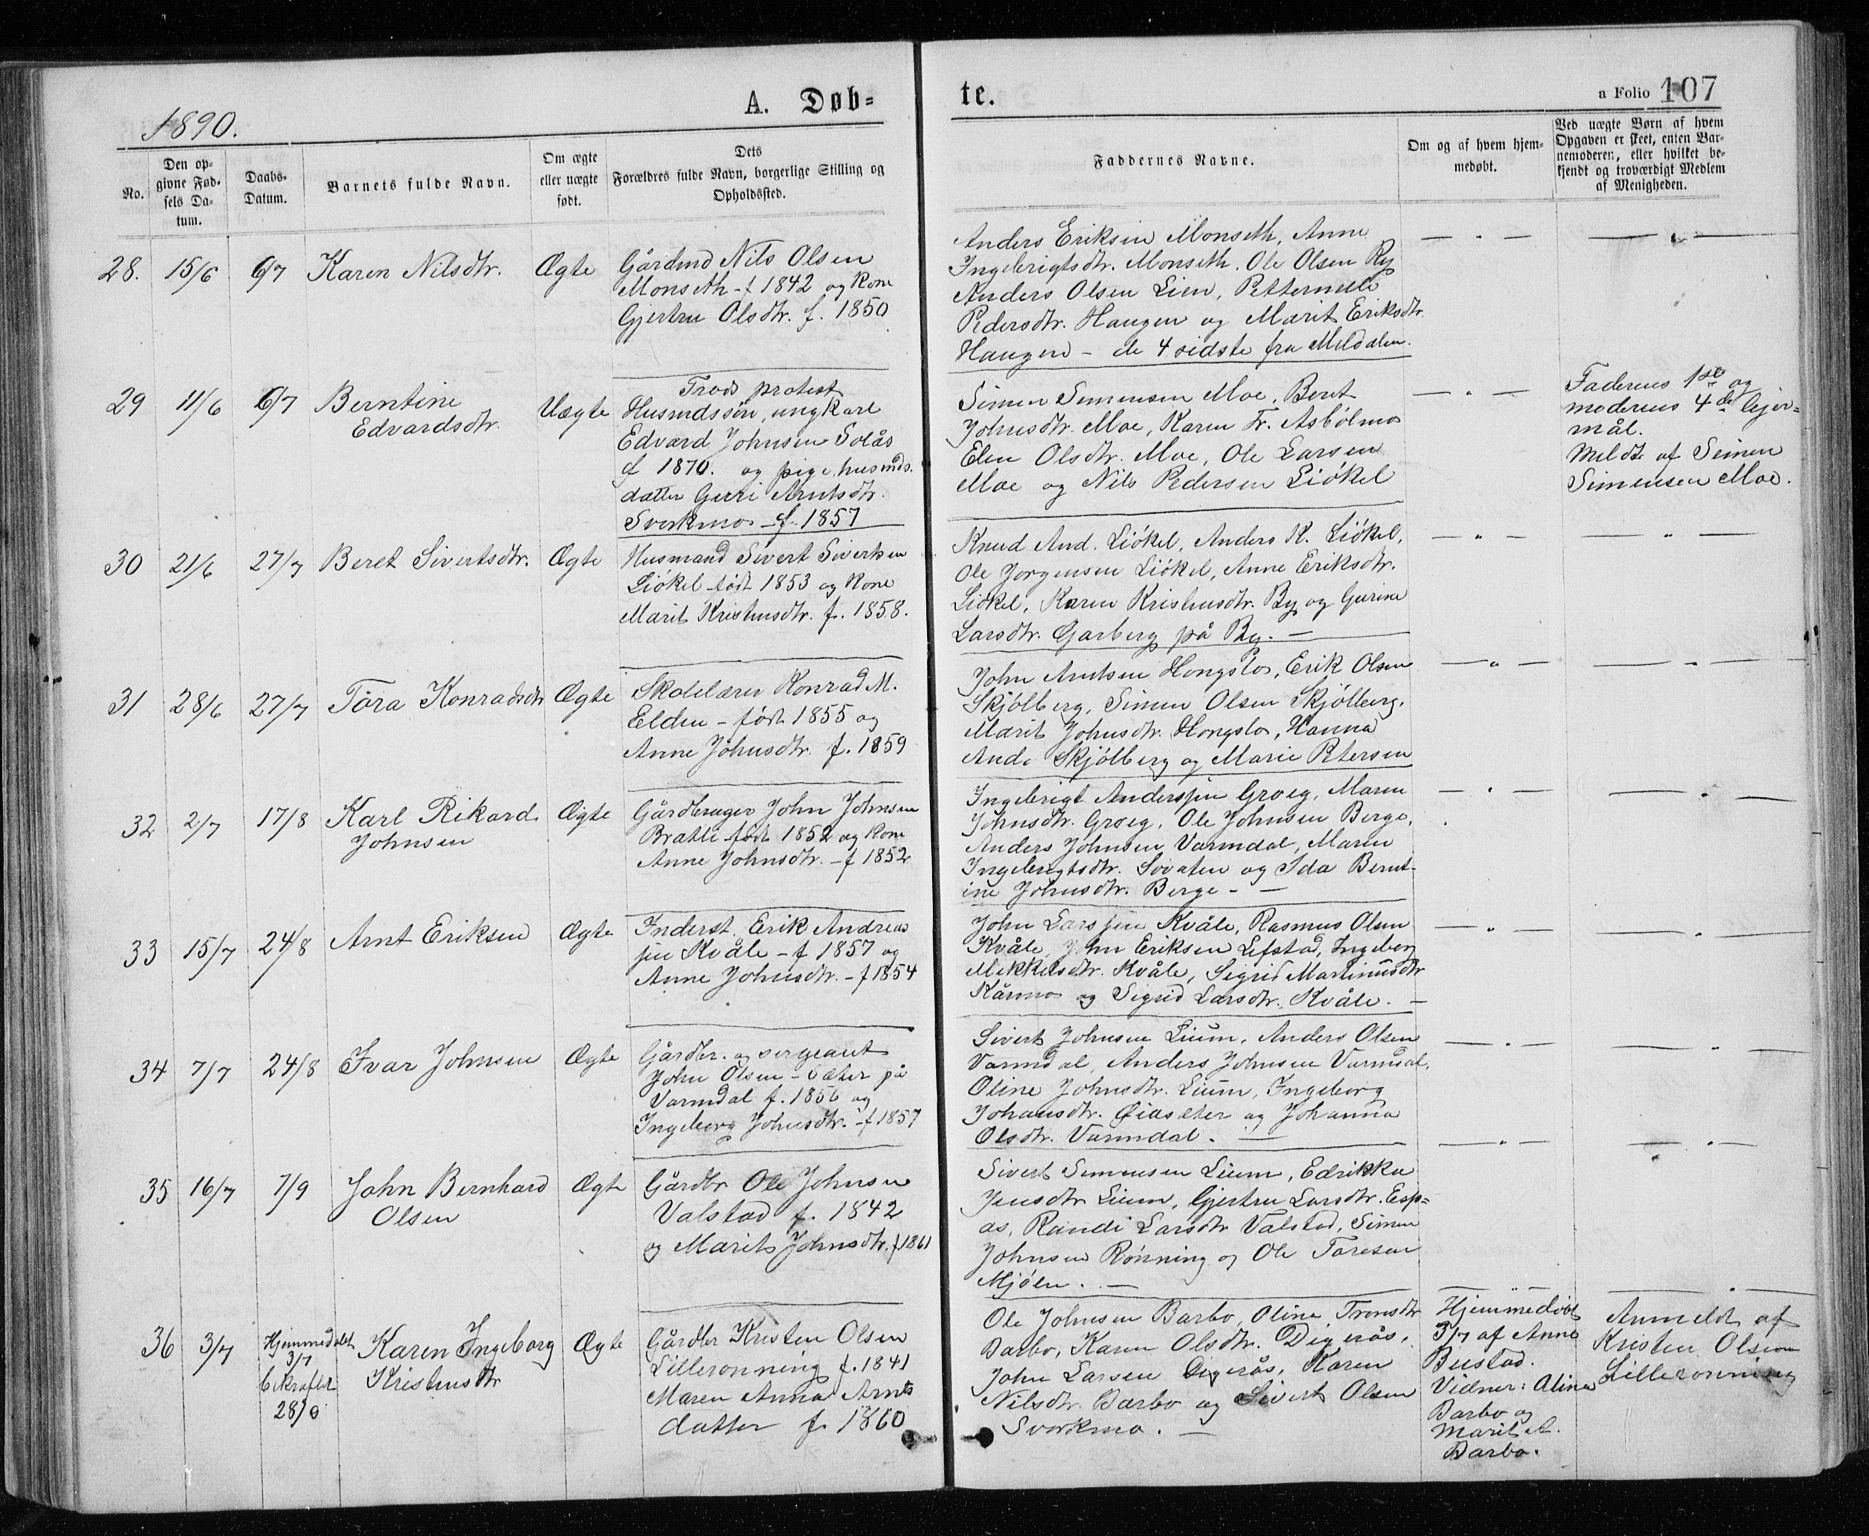 1890.
A. Døb-
te.
a Folio 107
No.
Den op-
givne Fød-
sels Da-
tum.
Daabs-
Datum.
Barnets fulde Navn.
Om ægte
eller uægte
født.
Dets
Forældres fulde Navn, borgerlige Stilling og
Opholdssted.
Faddernes Navne.
Om og af hvem hjem-
medøbt.
Ved uægte Børn af hvem
Opgaven er skeet, enten Bar-
nemoderen, eller hvilket be-
kjendt og troværdigt Medlem
af Menigheden.
28. 15/6 6/7 Karen Nilsdtr. Ægte
Gårdmd Nils Olsen
Monseth - f 1842 og Kone
Gjertru Olsdtr. f. 1850
Anders Eriksen Monseth, Anne
Ingebrigtsdtr. Monseth. Ole Olsen Ry
Anders Olsen Lien, Petternelle
Pedersdtr. Haugen og Marit Eriksdtr.
Haugen - de 4 sidste fra Meldalen.
29 11/6 6/7 Berntine
Edvardsdtr. Uægte
Trods protest
Husmdssøn, ungkarl
Edvard Johnsen Solås
f 1870. og pige, husmds.
datter Guri Arntsdtr.
Svorkmo - f. 1857
Simen Simensen Moe, Beret
Johnsdtr. Moe, Karen Fr. Asbølmo
Elen Olsdtr. Moe, Ole Larsen
Moe og Nils Pedersen Liøkel
Faderens 1ste og
moderens 4de lejer-
mål.
Meldt af Simen
Simensen Moe.
30 21/6 27/7 Beret Sivertsdtr. Ægte
Husmand Sivert Sivertsen
Liøkel født 1853 og Kone
Marit Kristensdtr. f. 1858.
Knud And. Liøkel, Anders K. Liøkel,
Ole Jørgensen Liøkel, Anne Eriksdtr.
Liøkel, Karen Kristensdtr. By og Gurine
Larsdtr. Garberg på By. -
31 28/6 27/7 Tora Konradsdtr Ægte
Skolelærer Konrad M.
Elden - født 1855 og
Anne Johnsdtr. f. 1859
John Arntsen Hongslo, Erik Olsen
Skjølberg, Simen Olsen Skjølberg.
Marit Johnsdtr. Hongslo, Hanna
And. Skjølberg og Marie Petersen
32 2/7 17/8 Karl Rikard
Johnsen Ægte
Gårdbruger John Johnsen
Bratli født 1852 og Kone
Anne Johnsdtr. - f 1852
Ingebrigt Anderssen Groeg, Maren
Johnsdtr. Groeg, Ole Johnsen Berge,
Anders Johnsen Varmdal, Maren
Ingebrigtsdtr. Sovaten og Ida Bernt-
ine Johnsdtr. Berge - -
33 15/7 24/8 Arnt Eriksen Ægte
Inderst. Erik Andreas
sen Kvåle - f 1857 og
Anne Johnsdtr. - f 1854
John Larssen Kvåle, Rasmus Olsen
Kvåle, John Eriksen Lefstad, Ingeborg
Mikkelsdtr. Kvåle, Sigrid Martinusdtr
Kårmo og Sigrid Larsdtr. Kvåle. -
34 7/7 24/8 Ivar Johnsen Ægte
Gårdbr. og sergeant
John Olsen - Sæter på
Varmdal f. 1856 og
Ingeborg Johnsdtr. - f 1857
Sivert Johnsen Lium, Anders Olsen
Varmdal, Anders Johnsen Varmdal,
Oline Johnsdtr. Lium, Ingeborg
Johansdtr. Øiasæter og Johanna
Olsdtr. Varmdal. -
35 16/7 7/9 John Bernhard
Olsen Ægte
Gårdbr Ole Johnsen
Valstad f. 1842
og Marit Johnsdtr. f 1861
Sivert Simensen Lium, Edrikka
Jensdtr Lium, Gjertru Larsdtr. Esp-
ås, Randi Larsdtr Valstad, Simen
Johnsen Rønning og Ole Toresen
Mjøen. -
36 3/7 Hjemmedøbt
3/7
bekræftet
28/9 Karen Ingeborg
Kristensdtr Ægte
Gårdbr Kristen Olsen
Lillerønning f. 1841
Maren Anna Arnts
datter f. 1860
Ole Johnsen Barbo, Oline Tronsdtr
Barbo, Karen Olsdtr. Digerås,
John Larsen Digerås, Karen
Nilsdtr. Barbo og Sivert Olsen
Svorkmo. -
Hjemmedøbt
3/7 af Anne
Bustad.
Vidner: Oline
Barbo og
Marit A.
Barbo.
Anmeldt af
Kristen Olsen
Lillerønning